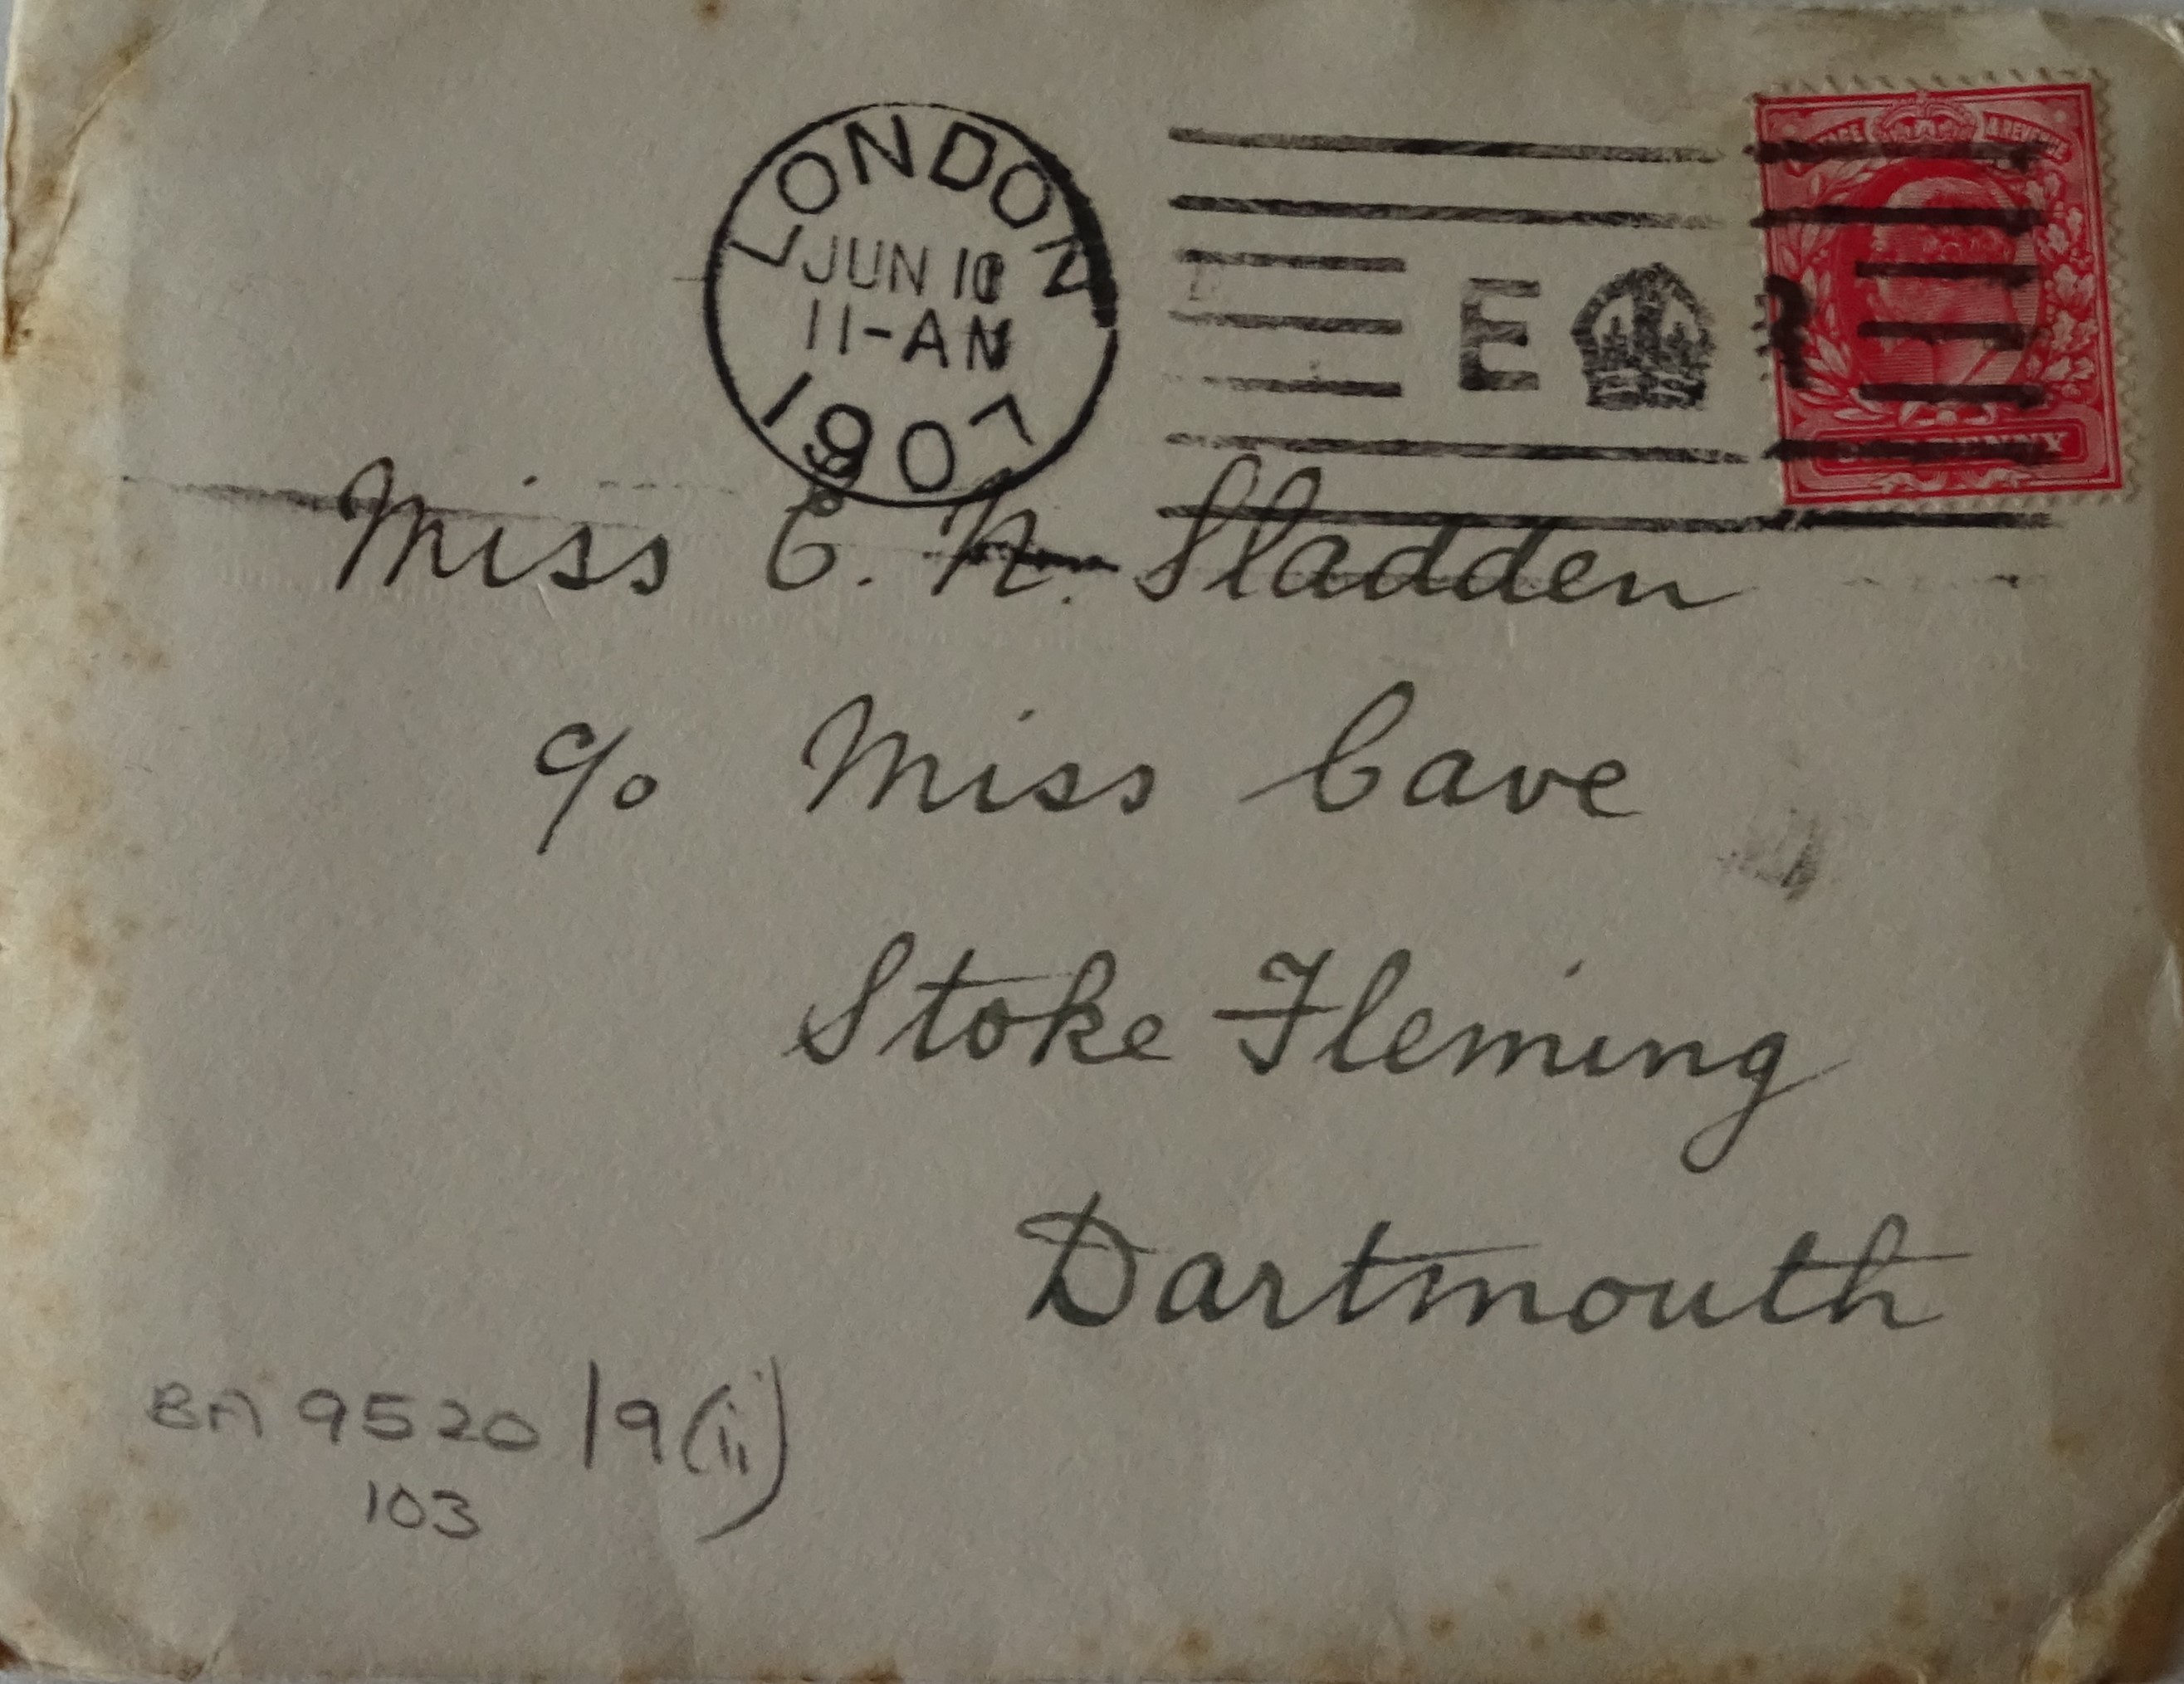 LONDON
JUN 10
11-AM
1907
E R
ONE PENNY
Miss E. N. Sladden
c/o Miss Cave
Stoke Fleming
Dartmouth
BA 9520/9(ii)
103